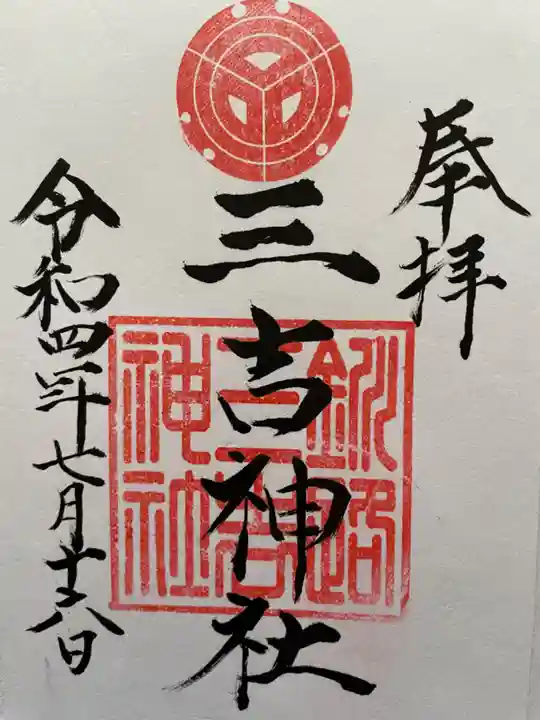 奉拝
三吉神社
釧路
三吉
神社
令和四年七月十八日